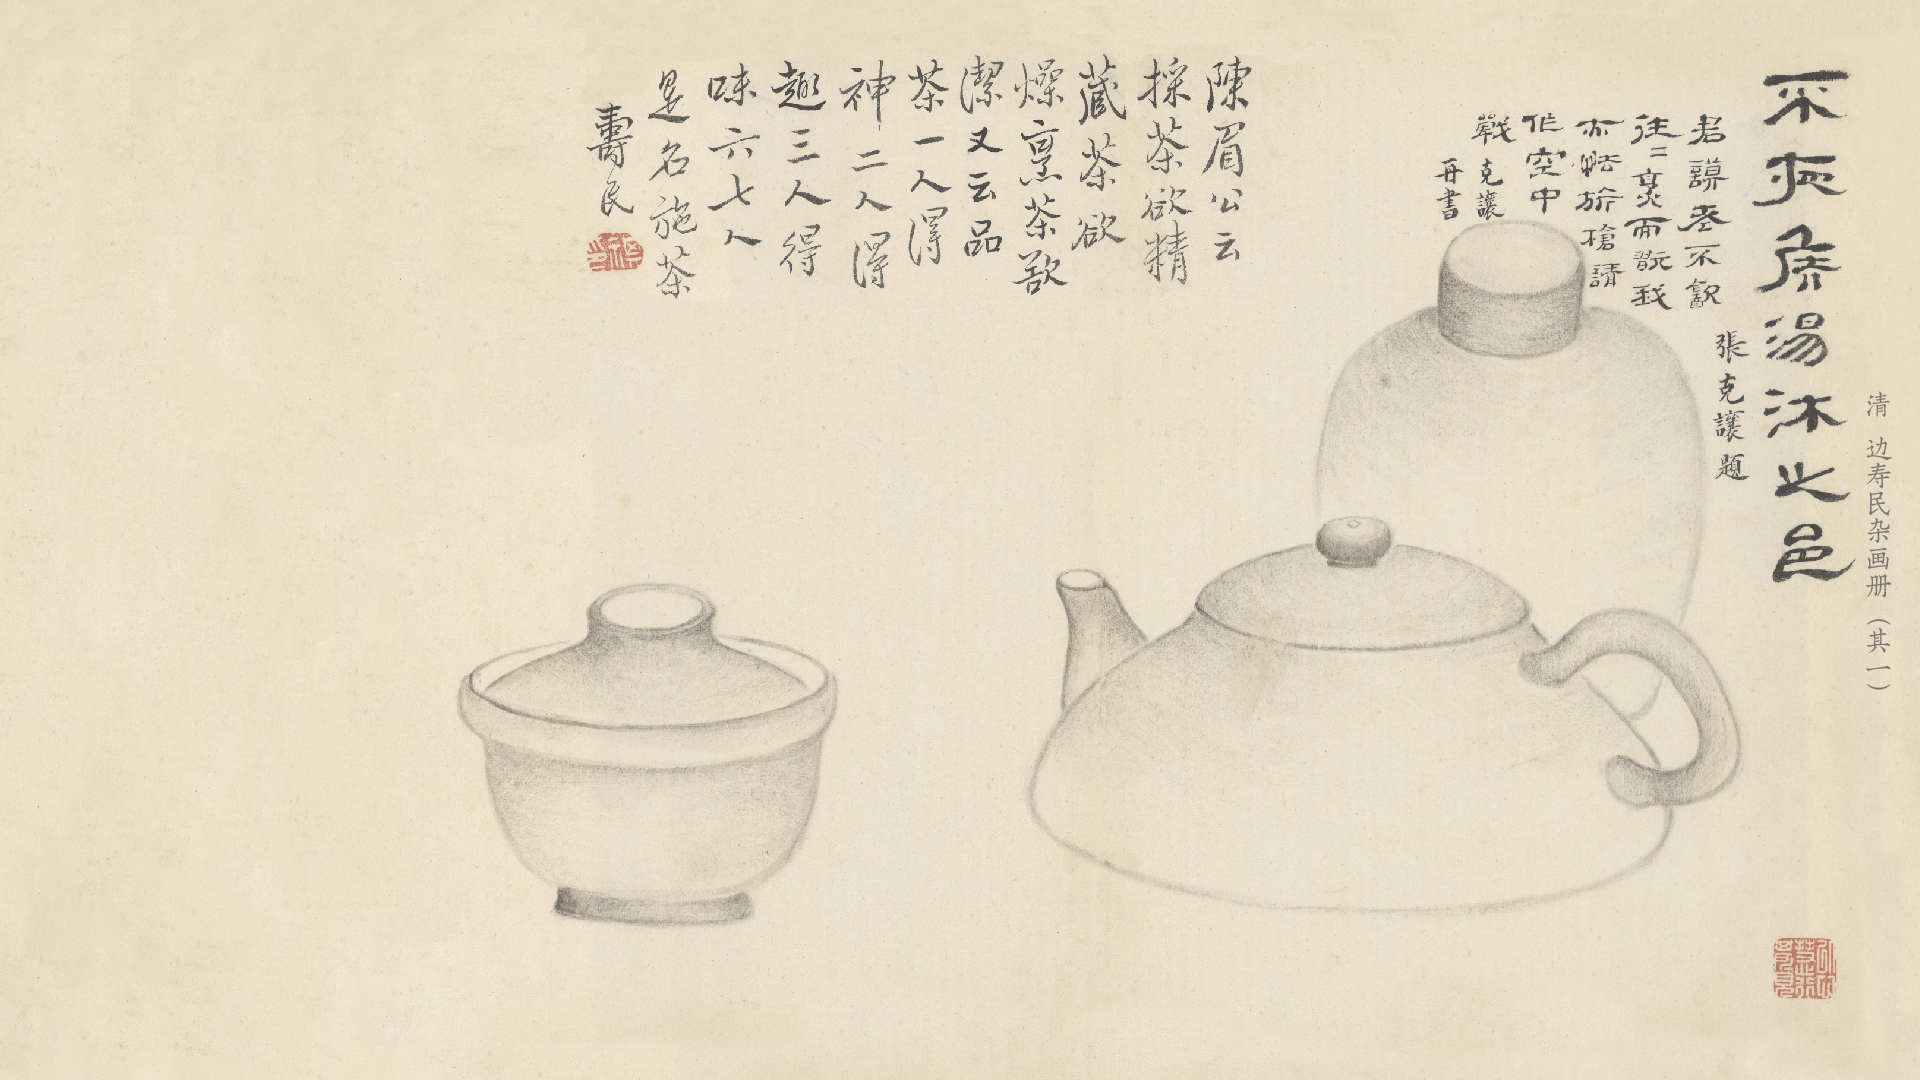 清 边寿民杂画册（其一）
不夜矦湯沐之邑
張克讓題
君謨老不飲
往〻烹而翫我
亦點旂槍請
作空中
戰 克讓
再書
陳眉公云
採茶欲精
藏茶欲
燥烹茶欲
潔又云品
茶一人得
神二人得
趣三人得
味六七人
是名施茶
壽民